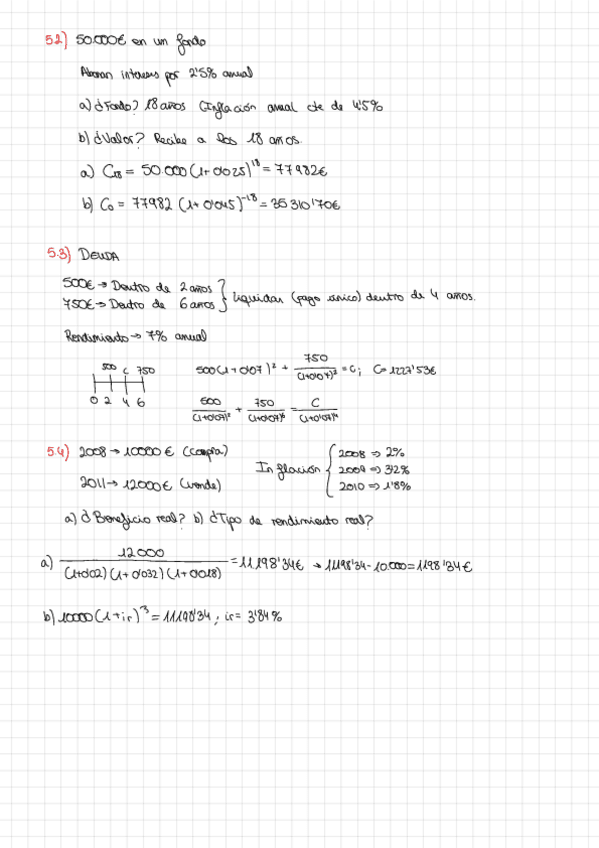 5.2) 50.000€ en un fondo
Abonan intereses por 2'5% anual
a) ¿Fondo? 18 años (Inflación anual cte de 4'5%
b) ¿Valor? Recibe a los 18 años.
a) C₁₈ = 50.000 (1+0'025)¹⁸ = 77982€
b) C₀ = 77982 (1+0'045)⁻¹⁸ = 35310'70€
5.3) DEUDA
500€ → Dentro de 2 años
750€ → Dentro de 6 años } Liquidar (pago único) dentro de 4 años.
Rendimiento → 7% anual
500 C 750
0 2 4 6
500(1+0'07)² + 750/(1+0'07)² = C; C=1227'53€
500/(1+0'07)² + 750/(1+0'07)⁶ = C/(1+0'07)⁴
5.4) 2008 → 10000€ (compra)
2011 → 12000€ (vende)
Inflación { 2008 ⇒ 2%
2009 ⇒ 3'2%
2010 ⇒ 1'8%
a) ¿Beneficio real? b) ¿Tipo de rendimiento real?
a) 12000/(1+0'02)(1+0'032)(1+0'018) = 11198'34€ → 11198'34-10.000=1198'34€
b) 10000(1+ir)³ = 11198'34; ir= 3'84%